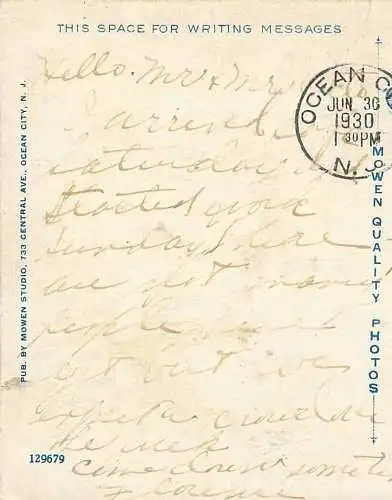 THIS SPACE FOR WRITING MESSAGES
Hello. Mr & Mr
I arrived
Saturday
Started work
Sunday. There
are not many
people
out but we
expect a crowd
the week
Come down some
Florence
OCEAN C
JUN 30
1930
1 30 PM
N. J.
PUB. BY MOWEN STUDIO, 733 CENTRAL AVE., OCEAN CITY, N. J.
MOWEN QUALITY PHOTOS
129679